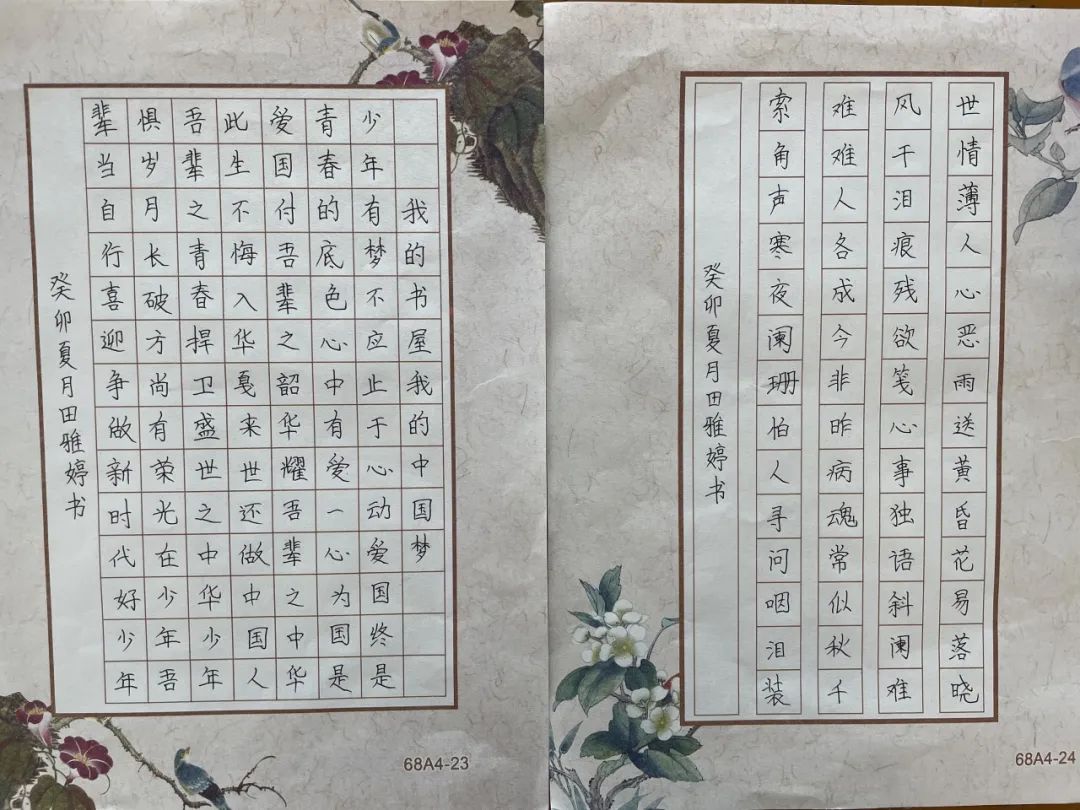 我的书屋我的中国梦
少年有梦不应止于心动爱国终是
青春的底色心中有爱一心为国是
爱国付吾辈之韶华耀吾辈之中华
此生不悔入华戛来世还做中国人
吾辈之青春捍卫盛世之中华少年
惧岁月长破方尚有荣光在少年吾
辈当自行喜迎争做新时代好少年
癸卯夏月田雅婷书
68A4-23
世情薄人心恶雨送黄昏花易落晓
风干泪痕残欲笺心事独语斜阑难
难难人各成今非昨病魂常似秋千
索角声寒夜阑珊怕人寻问咽泪装
癸卯夏月田雅婷书
68A4-24